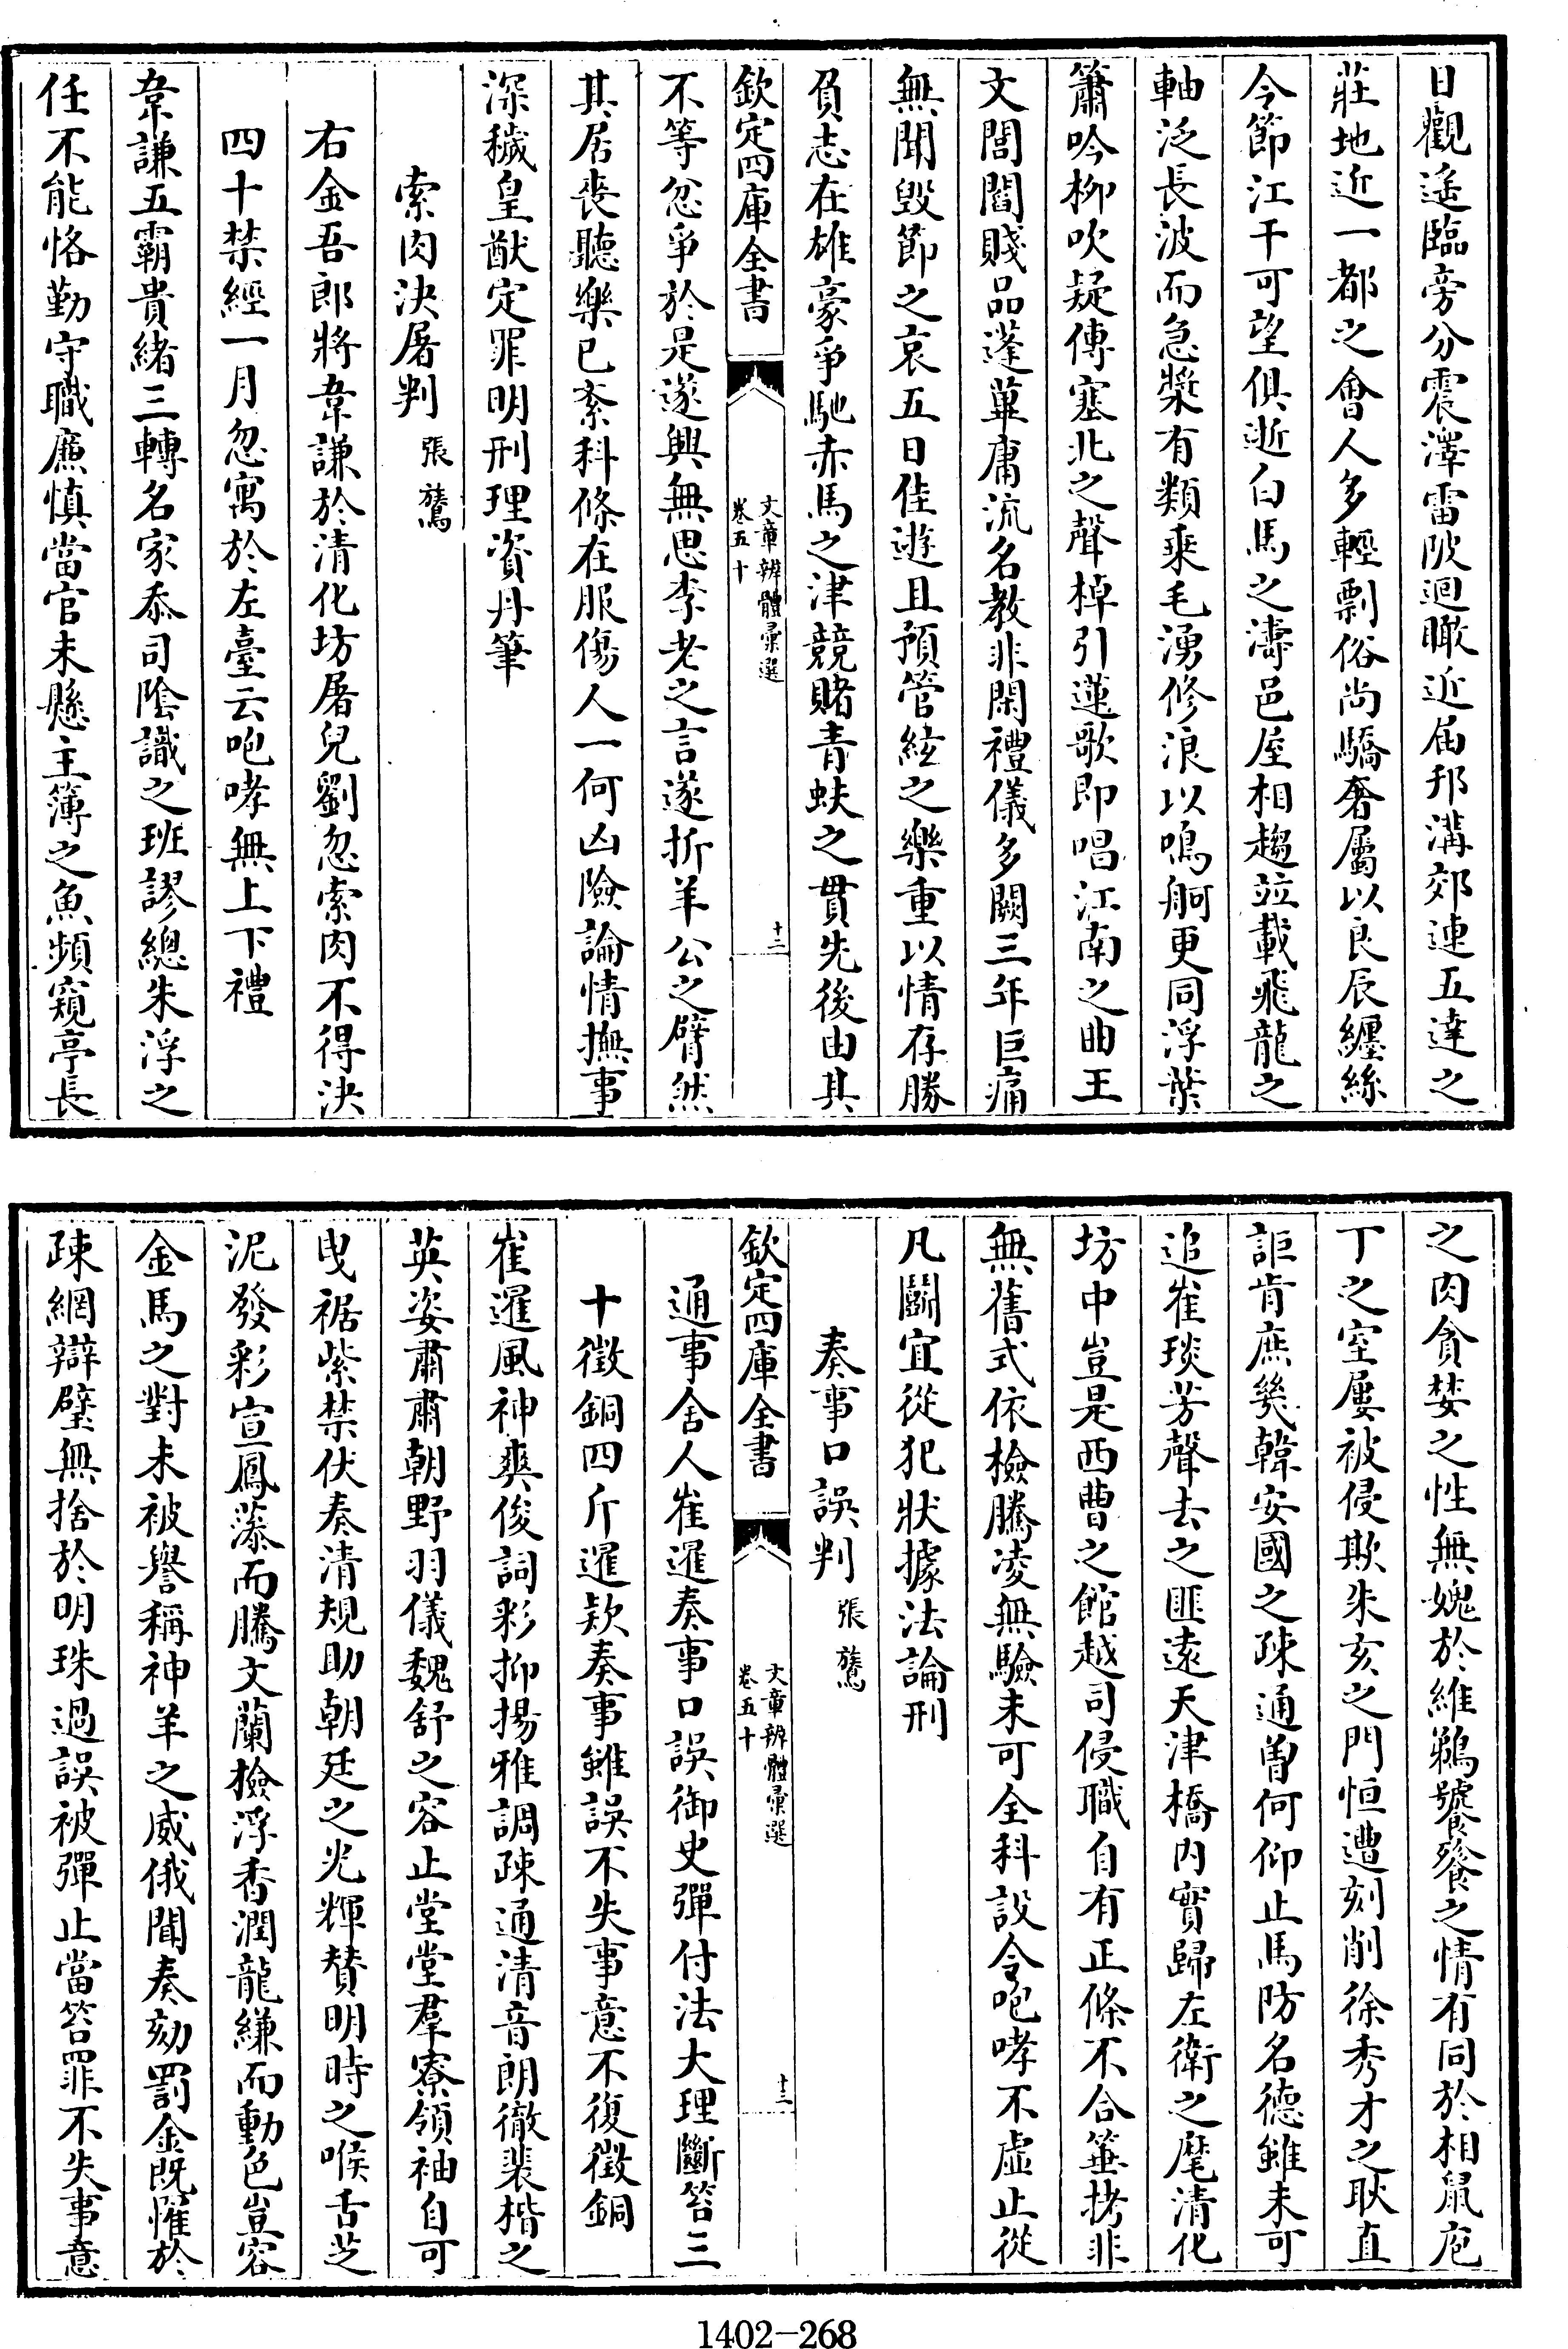 日觀遙臨旁分震澤雷陂迥瞰近届邗溝郊連五達之
莊地近一都之會人多輕剽俗尚驕奢屬以良辰纏絲
今節江干可望俱逝白馬之濤邑屋相趨竝載飛龍之
軸泛長波而急槳有類乘毛湧修浪以鳴舸更同浮葉
簫吟柳吹疑傳塞北之聲棹引蓮歌即唱江南之曲王
文閭閻賤品蓬蓽庸流名教非閑禮儀多闕三年巨痛
無聞毁節之哀五日佳遊且預管絃之樂重以情存勝
負志在雄豪爭馳赤馬之津競賭青蚨之貫先後由其
欽定四庫全書
文章辨體彙選
卷五十
十二
不等忿爭於是遂興無思李老之言遂折羊公之臂然
其居喪聽樂已紊科條在服傷人一何凶險論情撫事
深穢皇猷定罪明刑理資丹筆
索肉決屠判 張鷟
右金吾郎將韋謙於清化坊屠兒劉忽索肉不得決
四十禁經一月忽寓於左臺云咆哮無上下禮
韋謙五霸貴緒三轉名家忝司陰識之班謬總朱浮之
任不能恪勤守職廉慎當官未懸主簿之魚頻窺亭長
之肉貪婪之性無媿於維鵜饕餮之情有同於相鼠庖
丁之室屢被侵欺朱亥之門恒遭刻削徐秀才之耿直
詎肯庶幾韓安國之疎通曽何仰止馬防名德雖未可
追崔琰芳聲去之匪遠天津橋内實歸左衛之麾清化
坊中豈是西曹之館越司侵職自有正條不合箠拷非
無舊式依檢騰凌無驗未可全科設令咆哮不虛止從
凡鬭宜從犯狀據法論刑
奏事口誤判 張鷟
欽定四庫全書
文章辨體彙選
卷五十
十三
通事舍人崔暹奏事口誤御史彈付法大理斷笞三
十徵銅四斤暹欵奏事雖誤不失事意不復徵銅
崔暹風神爽俊詞彩抑揚雅調疎通清音朗徹裴楷之
英姿肅肅朝野羽儀魏舒之容止堂堂羣寮領袖自可
曳裾紫禁伏奏清規助朝廷之光輝賛明時之喉舌芝
泥發彩宣鳳藻而騰文蘭撿浮香潤龍縑而動色豈容
金馬之對未被譽稱神羊之威俄聞奏劾罰金既罹於
疎網辯璧無捨於明珠過誤被彈止當笞罪不失事意
1402-268